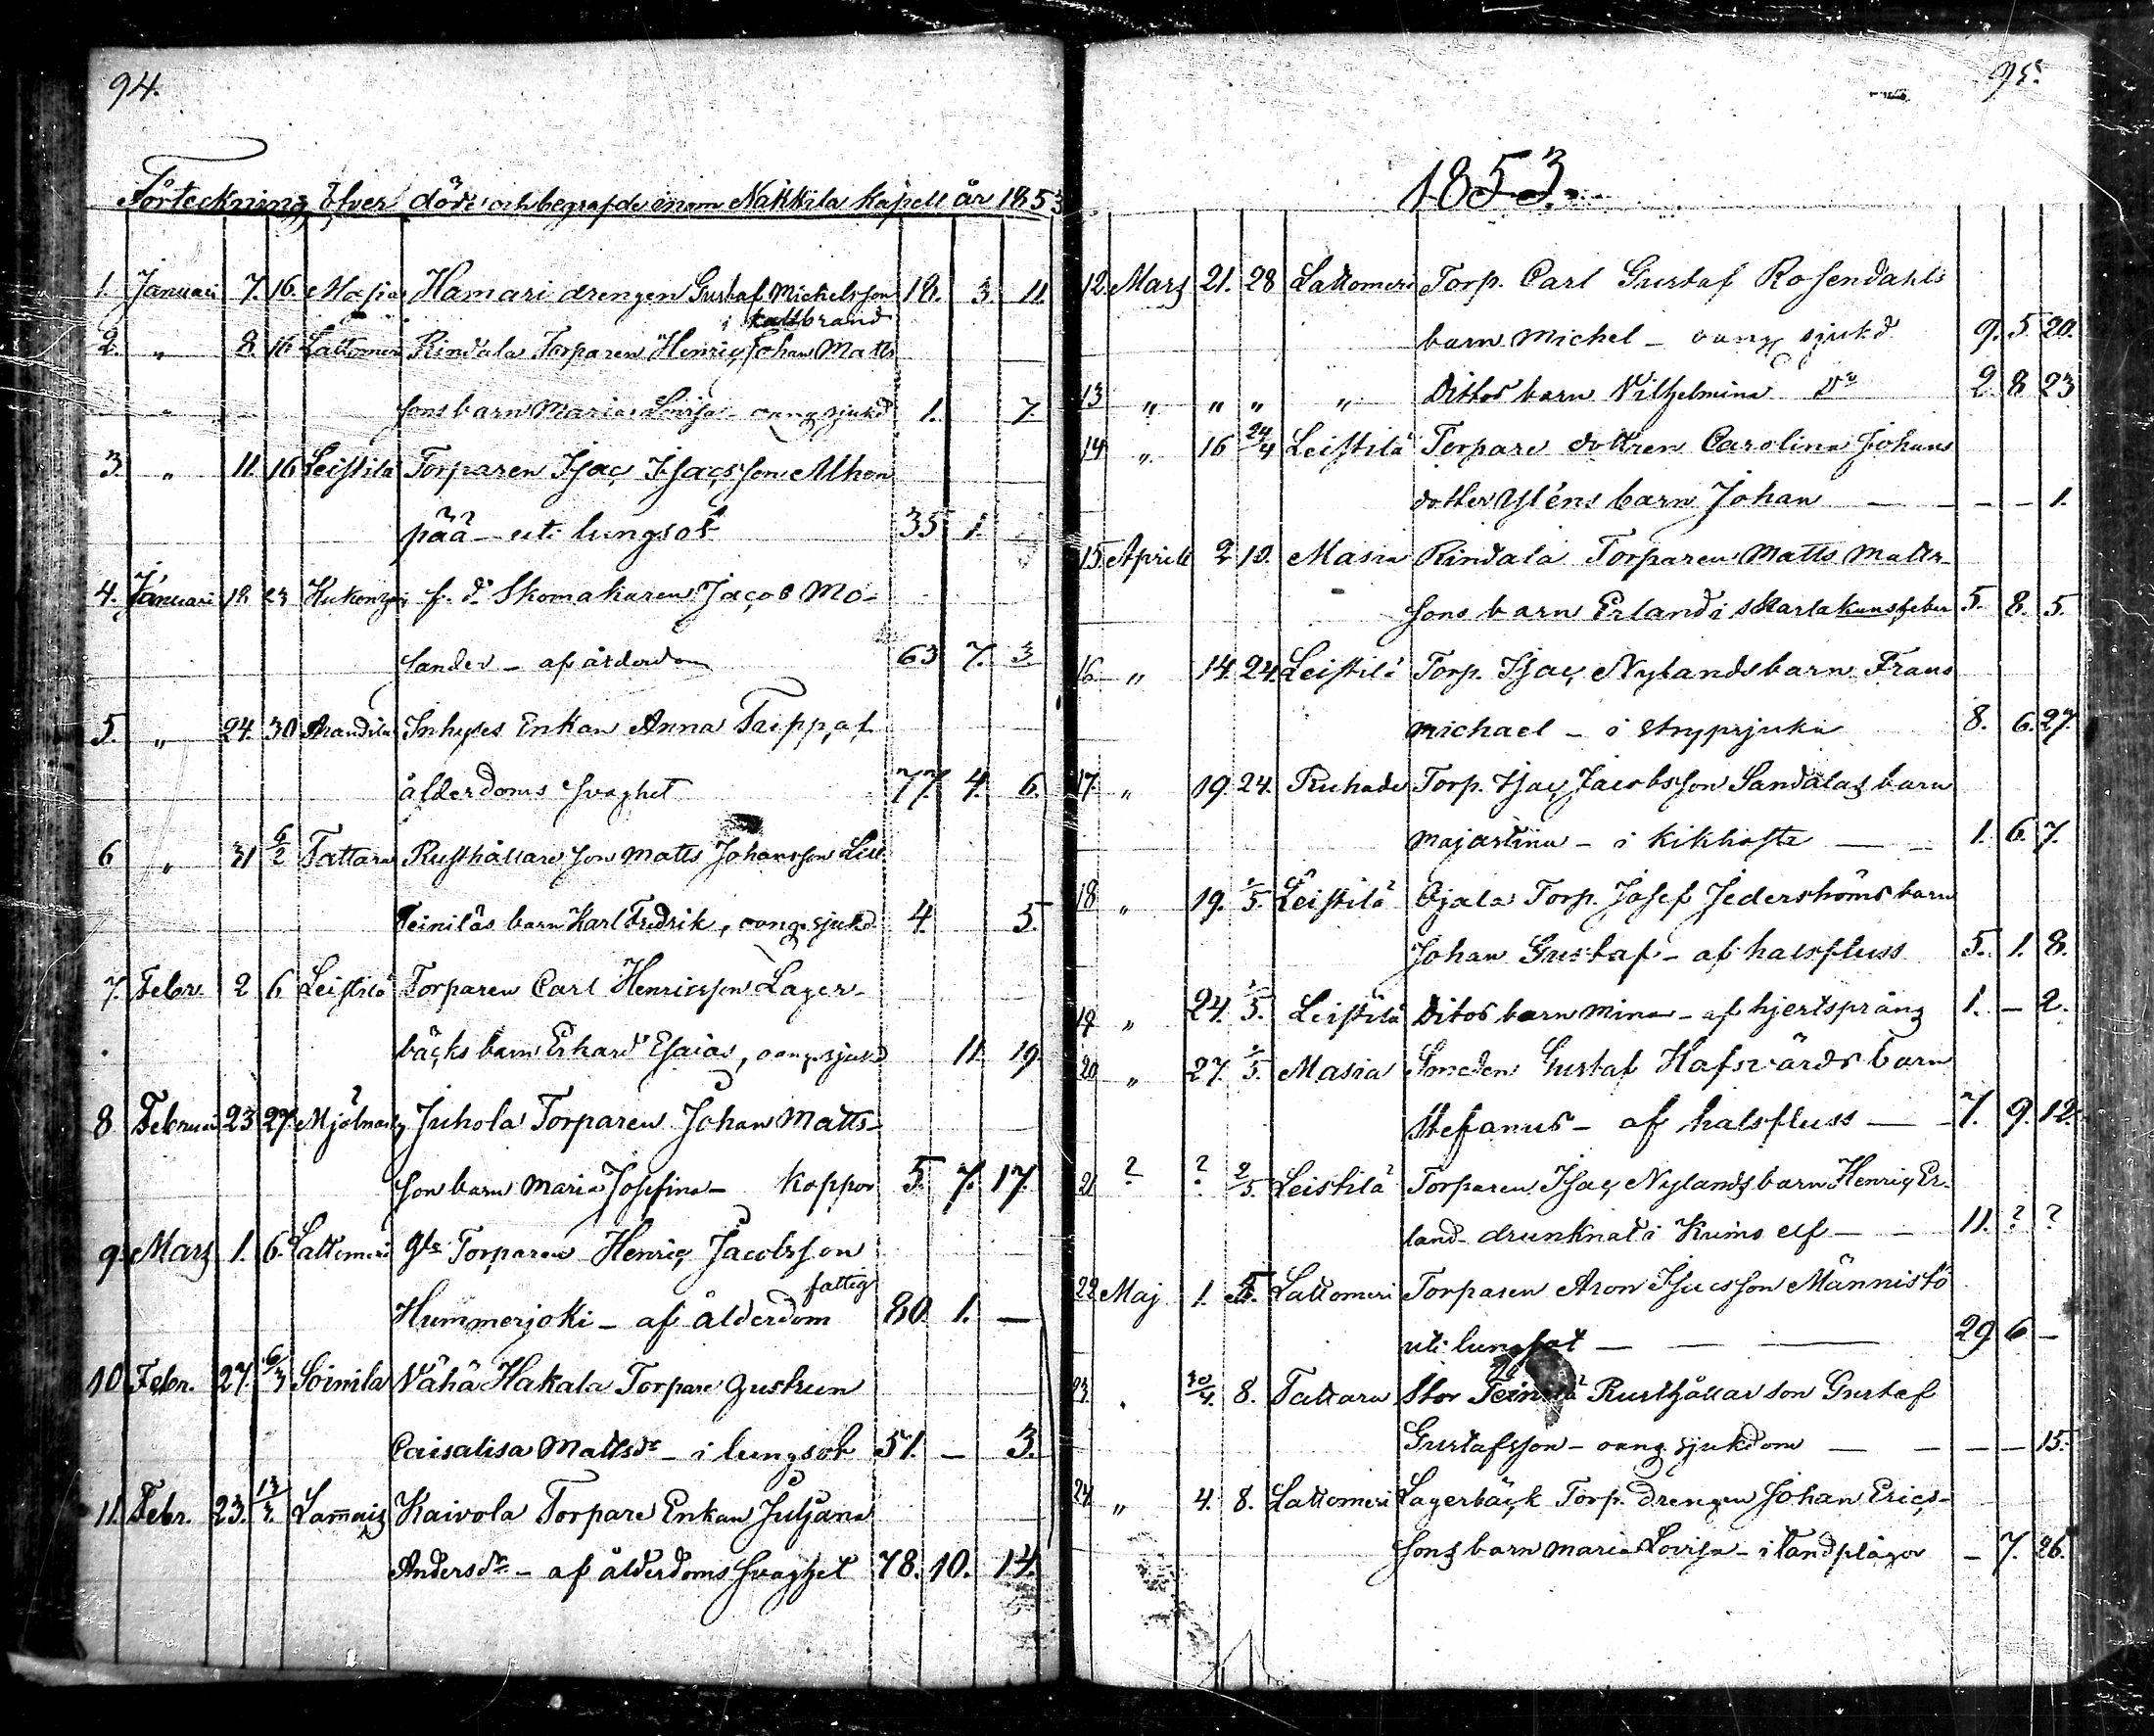 94.
Förteckning öfver döde och begrafde inom Nakkila Kapell år 1853
1. Januari 7. 16. Masia Hamari drengen Gustaf Michelsson 18. 3. 11.
i kallbrand
2. " 8. 16 Lattomeri Rindala Torparen Henric Johan Matts
" sons barn Maria Lovisa - oang sjukd 1. 7.
3. " 11. 16 Leistilä Torparen Isac Isacsson Alhon
pää - uti lungsot 35 1.
4. Januari 18 23 f. d. Skomakaren Jacob Mo-
lander - af ålderdom 63 7. 3.
5. " 24. 30 Arandila Inhyses Enkan Anna Tripp, af
ålderdoms svaghet 77. 4. 6.
6 " 31 6/2 Tattara Rusthållare son Matts Johansson Lill
Teiniläs barn Karl Fredrik, oang. sjukd. 4. 5.
7. Febr. 2 6 Leistilä Torparen Carl Henricsson Lager-
bäcks barn Erhard Esaias, oang. sjukd 11. 19.
8 Februari 23 27. Juhola Torparen Johan Matts-
son barn Maria Josefina - Koppor 5. 7. 17.
9. Mars 1. 6. Lattomeri gla Torparen Henric Jacobsson
fattig
Hummerjoki - af ålderdom 80. 1. —
10 Febr. 27. 6/3 Soinila Nähä Hakala Torpare gustrun
Caisalisa Mattsdr - i lungsot 51. — 3.
11. Febr. 23. 13/3. Kaivola Torpare Enkan Juljana
Andersdr - af ålderdoms svaghet 78. 10. 14.
95.
1853.
12. Mars 21. 28 Lattomeri Torp. Carl Gustaf Rosendahls
barn Michel - oang sjukd 9. 5 20.
13 " " " " Dittos barn Vilhelmina Do 2 8 23
14 " 16 24/4 Leistilä Torpare dottren Carolina Johans
dotter Ysténs barn Johan — — — 1.
15 Aprill 2 10. Masia Rindala Torparen Matts Matts-
sons barn Erland i skarlakansfeber 5. 8. 5.
16 " 14. 24. Leistilä Torp. Isac Nylands barn Frans
Michael - i strypsjuka 8. 6. 27.
17. " 19. 24. Ruhade Torp. Isac Jacobsson Sandalas barn
Majastina - i Kikhosta — — 1. 6. 7.
18 " 19. 1/5. Leistilä Ojala Torp. Josef Jederströms barn
Johan Gustaf - af halsfluss 5. 1. 8.
19 " 24. 1/5. Leistilä Ditos barn Mina - af hjertsprång 1. — 2.
20 " 27. 1/5. Masia Smeden Gustaf Hafsvärds barn
Stefanus - af halsfluss — 7. 9. 12.
21 ? ? 2/5 Leistilä Torparen Isac Nylands barn Henric Er-
land drunknat i Kumo elf — — 11. ? ?
22 Maj 1. 5. Lattomeri Torparen Aron Isacsson Männistö
uti lungsot — — 29 6 —
23. 30/4. 8. Tattara Stor Teinilä Rusthållar son Gustaf
Gustafsson - oang. sjukdom — — — 15.
24 " 4. 8. Lattomeri Lagerbäck Torp. drengen Johan Erics-
sons barn Maria Lovisa - i tandplågor — 7. 26.